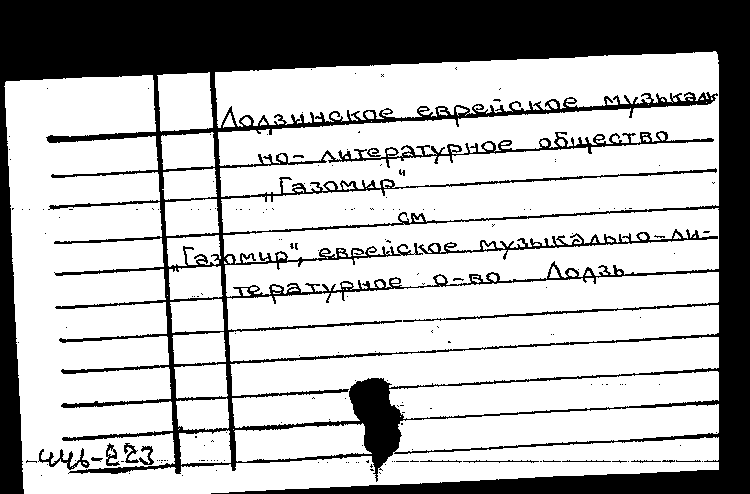 Лодзинское еврейское музыкаль
но-литературное общество
„Газомир"
см.
„Газомир", еврейское музыкально-ли-
тературное о-во. Лодзь.
446-223